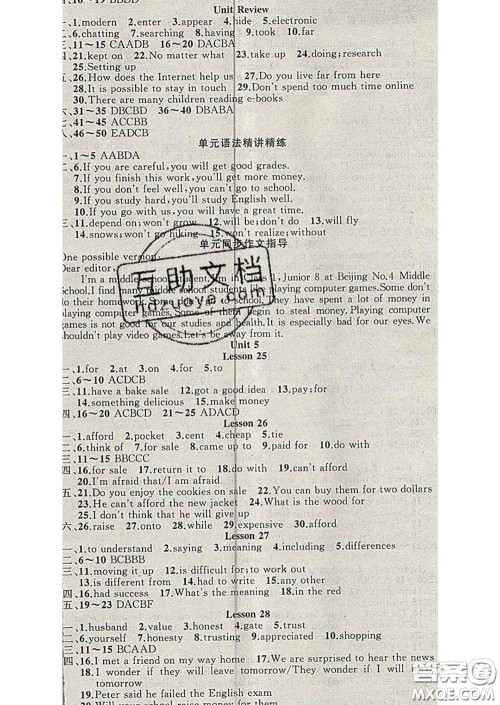 一、16~19 BBDD
Unit Review
一、1.modern 2.enter 3.appear 4.hide 5.electronic
二、6.chatting 7.searching 8.having 9.took 10.far
三、11~15 CAADB 16~20 DACBA
四、21.kept on 22.No matter what 23.take up 24.doing;research
25.Setting up
五、26.How does the Internet help us 27.Do you live far from here
28.It is possible to stay in touch 29.Don't spend too much time online
30.There are many children reading e-books
六、31~35 DBCBD 36~40 DBABA
七、41~45 ACCBB
八、46~50 EADCB
单元语法精讲精练
一、1~5 AABDA
二、6.If you are careful,you will get good grades.
7.If you finish this work,you'll get more money.
8.If you don't feel well,you can't go to school.
9.If you study hard,you'll study English well.
10.If you go with us,you will have a great time.
三、11.depend on;won't grow 12.will be;don't do 13.will fly
14.snows;won't go hiking 15.won't realize;without
单元同步作文指导
One possible version:
Dear editor,
I'm a middle school student.I'm in Class 1,Junior 8 at Beijing No.4 Middle
School.I find many middle school students like playing computer games.Some don't
do their homework
playing computer games.Some of them begin to steal money.Playing computer
games is not good for our studies and health.It is especially bad for our eyes.We
shouldn't play video games.Let's be away from it.
Unit 5
Lesson 25
一、1.for 2.at 3.on 4.for 5.to
二、6~10 ACDCB
三、11.have a bake sale 12.got a good idea 13.pay;for
14.something delicious 15.make money
四、16~20 ACBCD 21~25 ADACD
Lesson 26
一、1.afford 2.pocket 3.cent 4.cheap 5.tie
二、6.think of 7.for sale 8.came up to 9.paid for 10.do with
三、11~15 BBCCC
四、16.for sale 17.return it to 18.do with 19.can't afford
20.I'm afraid that/I am afraid
五、21.Do you enjoy the cookies on sale 22.You can buy them for two dollars
23.He can't afford the new jacket 24.What a great day
25.I don't think that he will give up
六、26.raise 27.onto 28.while 29.expensive 30.afford
Lesson 27
一、1.to understand 2.saying 3.meaning 4.including 5.differences
二、6~10 BCBBB
三、11.moving it up 12.is difficult for;to work out
13.is different from 14.had to write 15.any other
四、16.had success 17.What's the meaning 18.in the red
五、19~23 DACBF
Lesson 28
一、1.husband 2.value 3.honest 4.gate 5.trust
二、6.yourself 7.honesty 8.trusting 9.appreciated 10.shopping
三、11~15 BCAAD
四、16.I met a friend on my way home 17.We are surprised to hear the news
18.I wonder if they will leave tomorrow/They wonder if I will leave
tomorrow
19.Peter said he failed the English exam
20.Will your school raise money for them
互助文档
huzuoye.com
答案圈
MXQE.COM